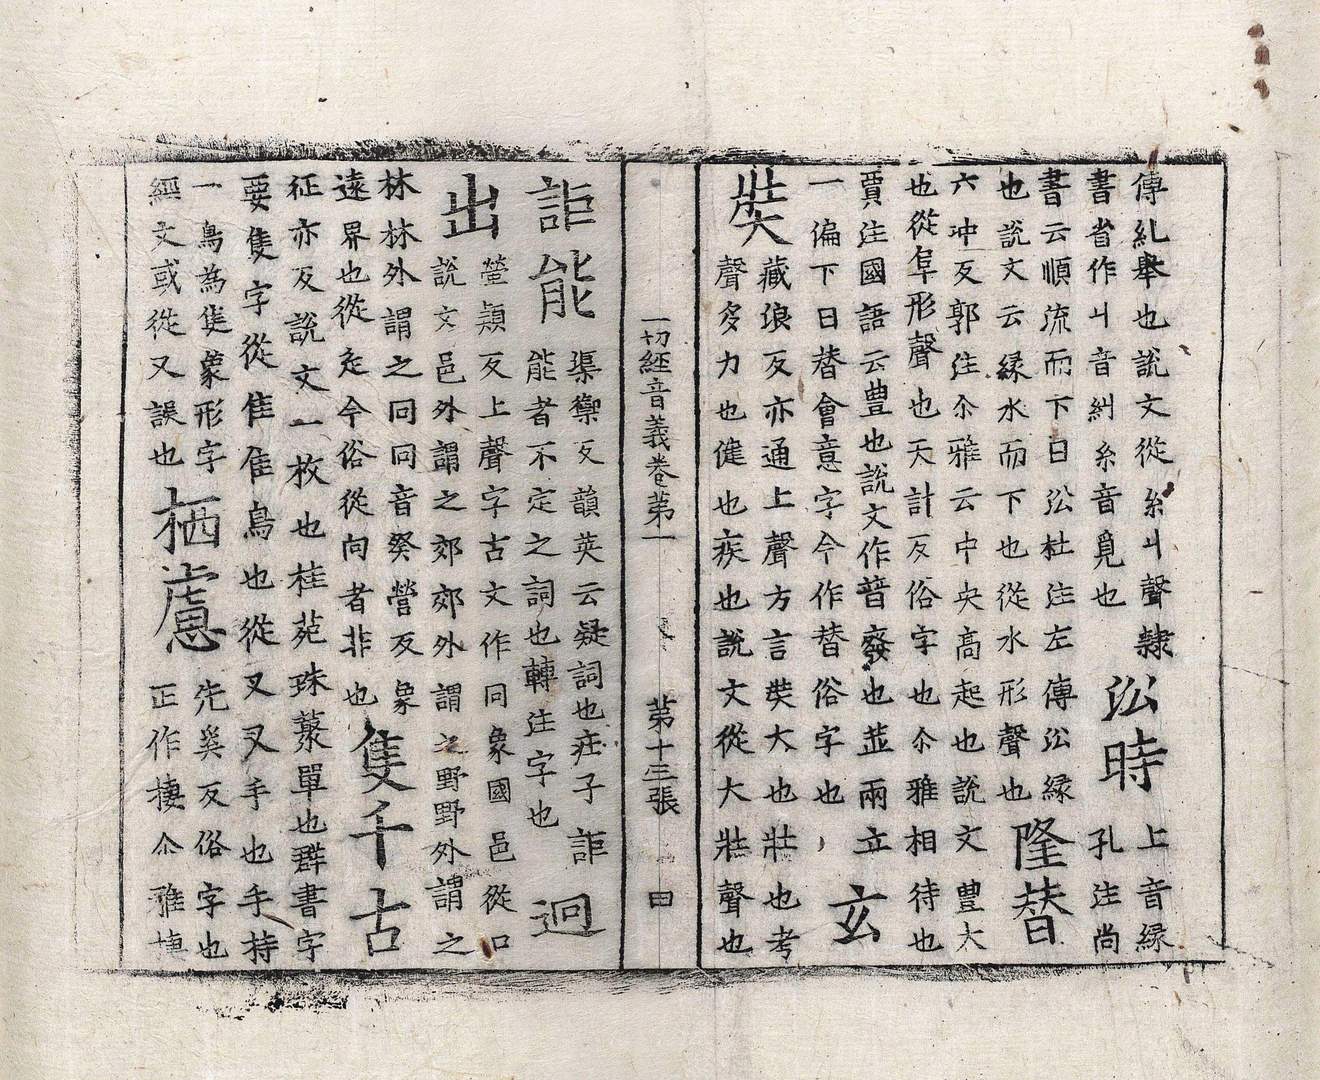 傳糺舉也說文從糸丩聲隸
書省作丩音糾糸音覓也
㳂時
上音緣
孔注尚
書云順流而下曰㳂杜注左傳㳂緣
也說文云緣水而下也從水形聲也
隆替
六冲反郭注尒雅云中央高起也說文豐大
也從阜形聲也天計反俗字也尒雅相待也
賈注國語云豊也說文作暜廢也並兩立
一偏下曰替會意字今作替俗字也
玄
奘
藏浪反亦通上聲方言奘大也壯也考
聲多力也健也疾也說文從大壯聲也
一切經音義卷第一 第十三張 曰
詎能
渠禦反韻英云疑詞也莊子詎
能者不定之詞也轉注字也
迥
出
螢熲反上聲字古文作冋象國邑從口
說文邑外謂之郊郊外謂之野野外謂之
林林外謂之冋冋音癸營反象
遠界也從辵今俗從向者非也
隻千古
征亦反說文一枚也桂苑珠叢單也群書字
要隻字從隹隹鳥也從又又手也手持
一鳥為隻象形字
經文或從又誤也
栖慮
先奚反俗字也
正作棲尒雅